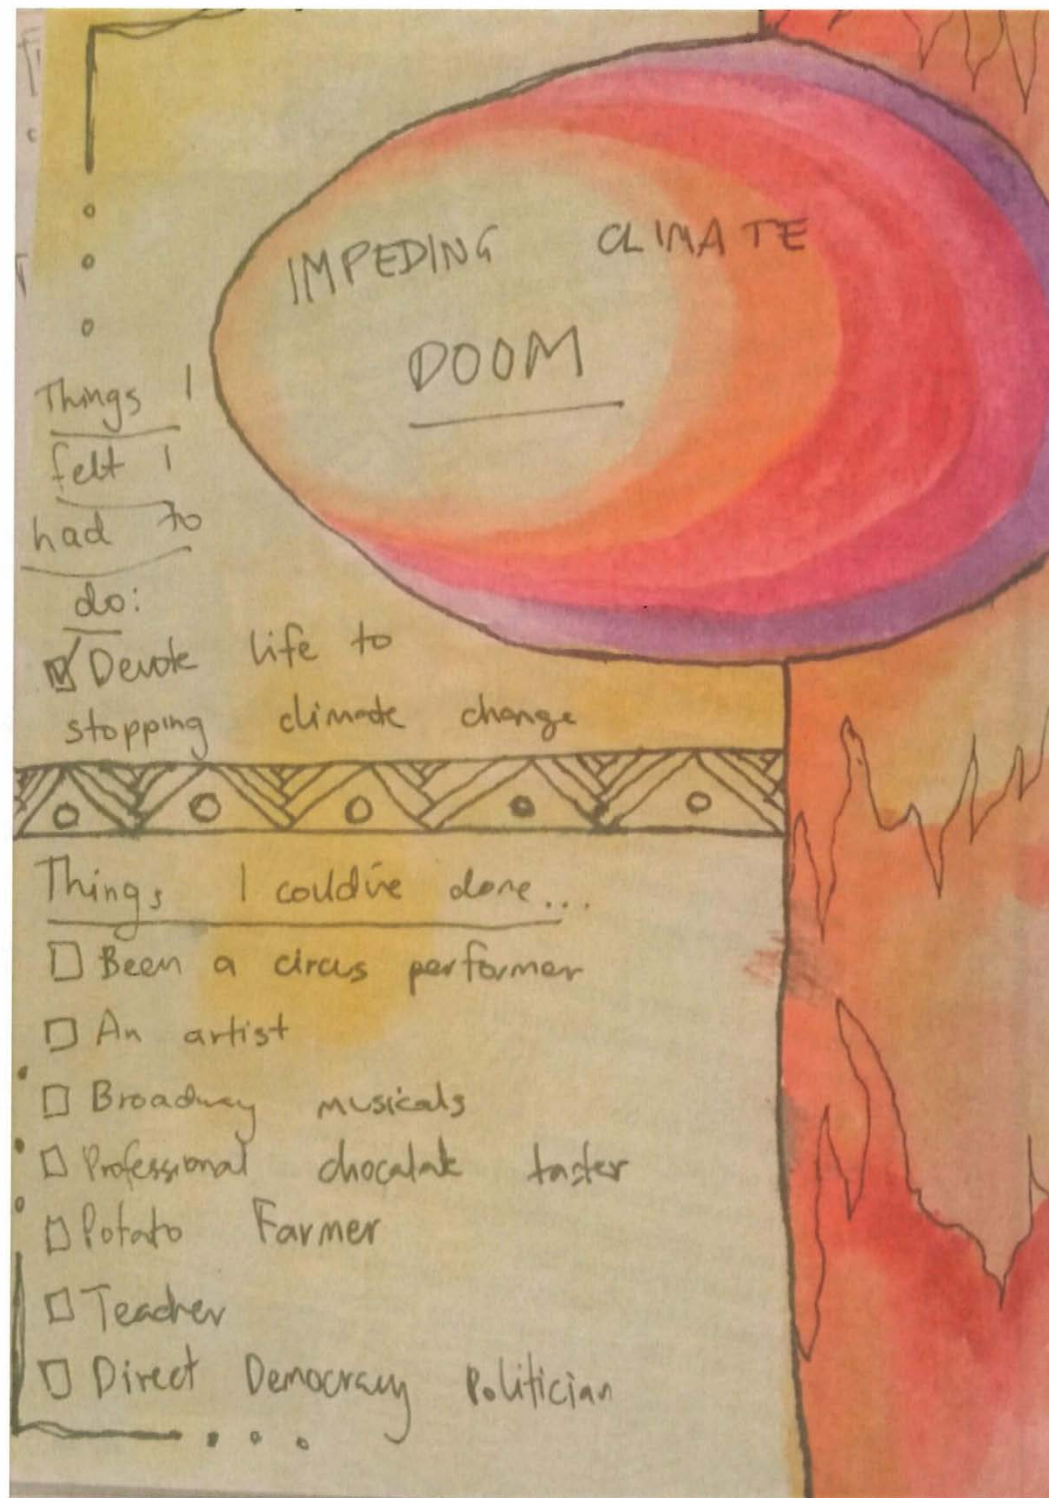 IMPEDING CLIMATE
DOOM
Things I
felt I
had to
do:
Devote life to
stopping climate change
Things I could've done...
Been a circus performer
An artist
Broadway musicals
Professional chocalate taster
Potato Farmer
Teacher
Direct Democracy Politician